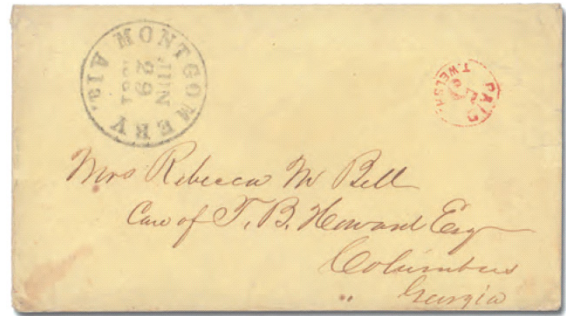 MONTGOMERY Ala.
JUN
29
1861
PAID
5
T. WELSH
Mrs Rebecca M Bell
Care of T. B. Howard Esq
Columbus
" Georgia